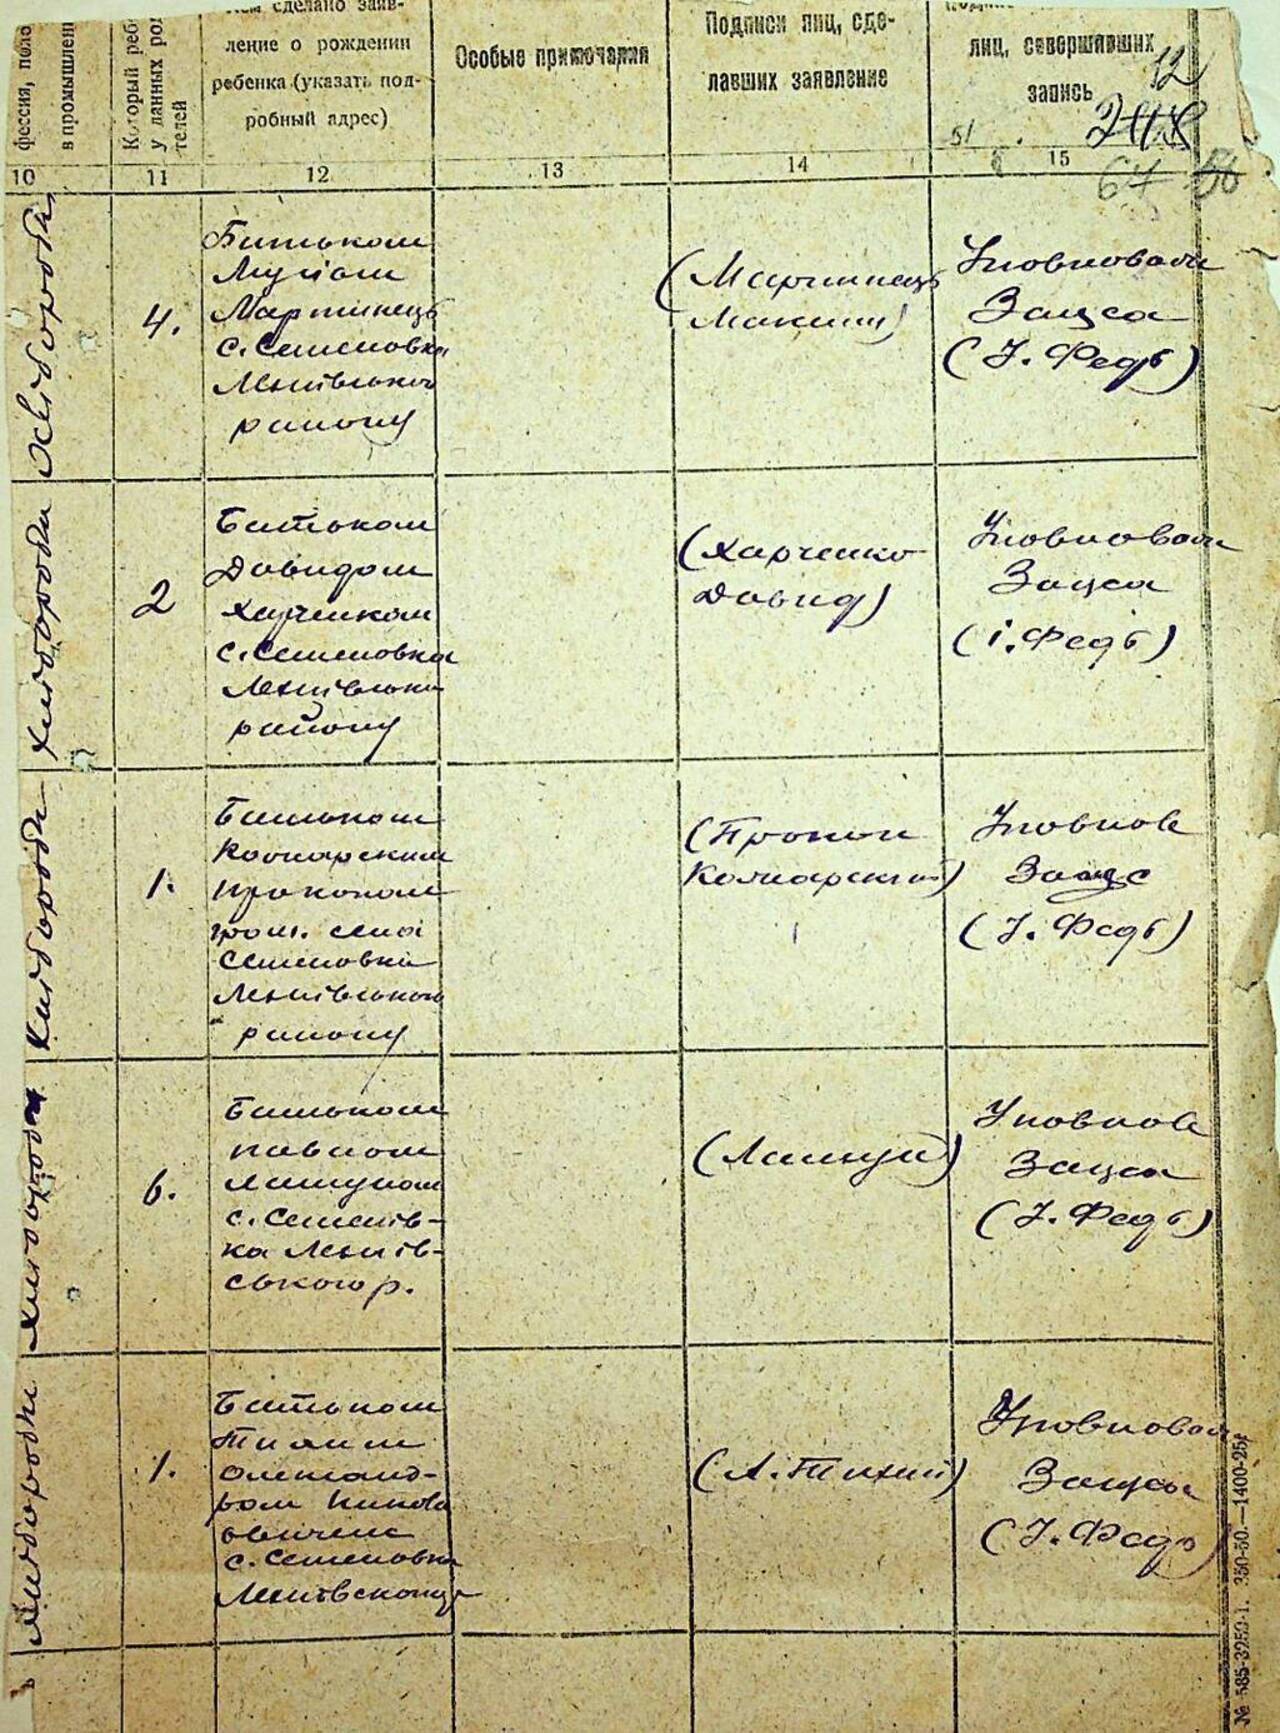 фессия, поло
в промышлен
Который реб
у данных род
телей
Кем сделано заяв-
ление о рождении
ребенка (указать под-
робный адрес)
Особые примечания
Подписи лиц, сде-
лавших заявление
лиц, совершивших
запись
12
51
67
10
11
12
13
14
15
4.
Батьком
Мартинець
с. Семеновка
Ленівського
району
(Мартинець
Максим)
Уповноваж
Загса
(І. Федь)
Хлібороби
2
Батьком
Давидом
Харченком
с. Семеновка
Ленівсько
району
(Харченко
Давид)
Уповноваж
Загса
(і. Федь)
Хлібороби
1.
Батьком
Комарским
Прокопом
гром. села
Семеновка
Ленівського
району
(Прокоп
Комарский)
Уповнов
Загс
(І. Федь)
Хлібороби
6.
Батьком
Павлом
с. Семенів-
ка Ленів-
ського р.
Уповнов
Загса
(І. Федь)
Хлібороби
1.
Батьком
Тихим
Олександ-
ром
с. Семеновка
(А. Тихий)
Уповноваж
Загса
(І. Федь)
№ 585-3259-1. 350-50.—1400-25г